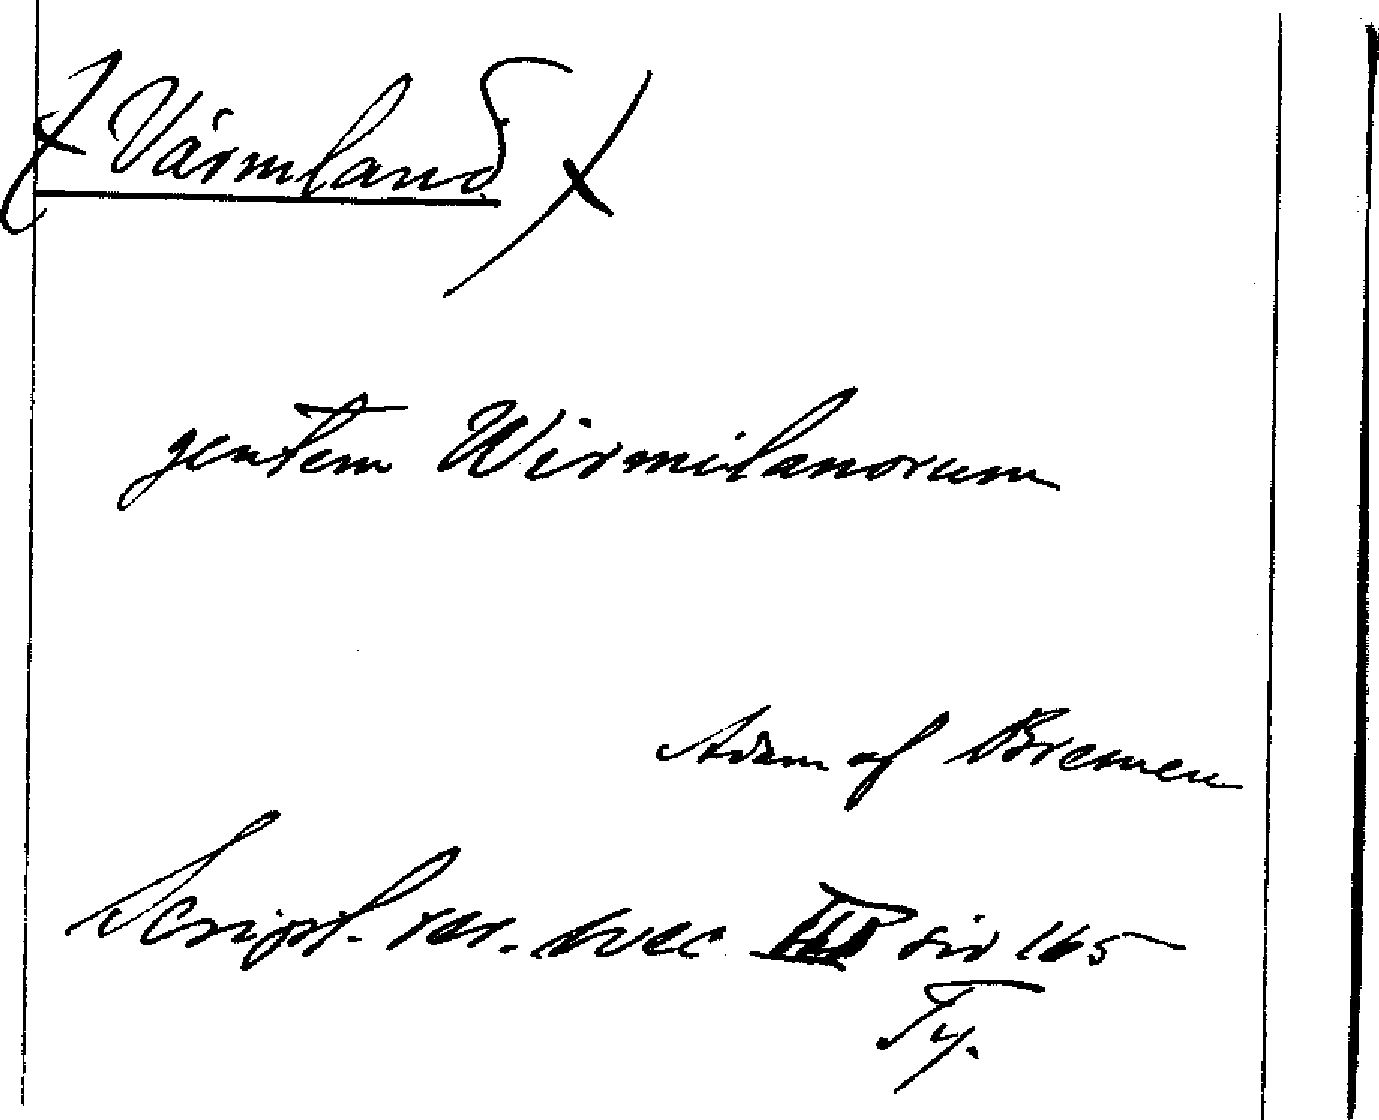 Värmland
gentem Wirmilanorum
Adam af Bremen
Script. rer. svec III sid 165
Ty.